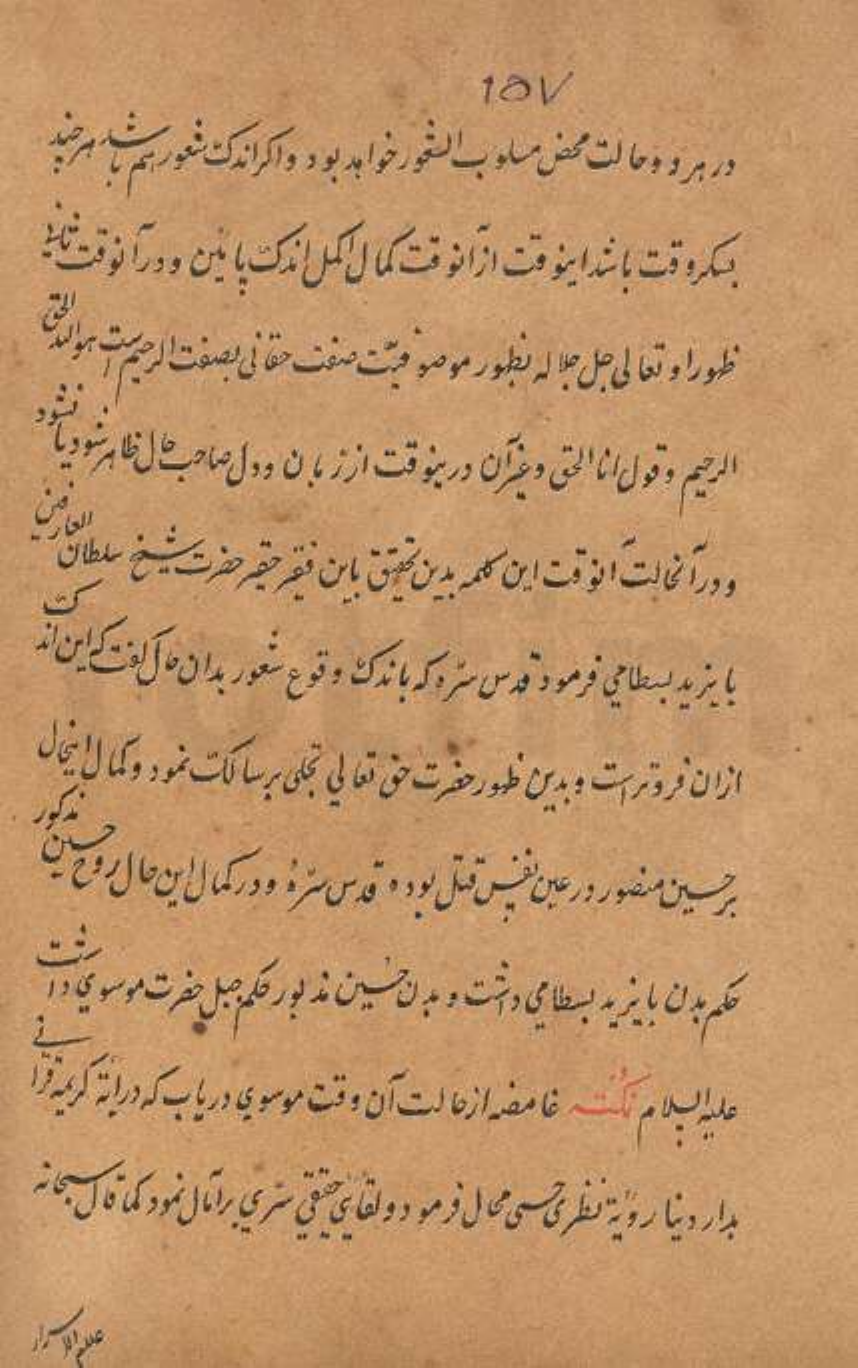 ۱۵۷
در هر دو حالت محض مسلوب الشعور خواهد بود و اکر اندک شعور هم باشد هر چند
بسکر وقت باشد اینوقت از آنوقت کمال اکمل اندک پائین و در آنوقت ثانی
ظهور او تعالی جل جلاله بظهور موصوفیّت صفت حقانی بصفت الرحیم است هو الله الحق
الرحیم و قول انا الحق و غیر آن درینوقت از زبان و دل صاحب حال ظاهر شود یا نشود
و در آنحالت آنوقت این کلمه بدین تحقیق باین فقیر حقیر حضرت شیخ سلطان العارفین
بایزید بسطامي فرمود قدس سرّه که باندک وقوع شعور بدان حال کفت که این اندک
ازان فروتر است و بدین ظهور حضرت حق تعالي تجلی بر سالک نمود و کمال اینحال
بر حسین منصور در عین نفس قتل بوده قدس سرّهٗ و در کمال این حال روح حسین مذکور
حکم بدن بایزید بسطامي داشت و بدن حسین مذبور حکم جبل حضرت موسوي داشت
علیه السلام نکته غامضه از حالت آن وقت موسوي دریاب که در آیة کریمه قرآنے
بدار دنیا رویة نظری حسی محال فرمود و لقاي حقیقي سرّي برآمال نمود کما قال سبحانه
علم الاسرار